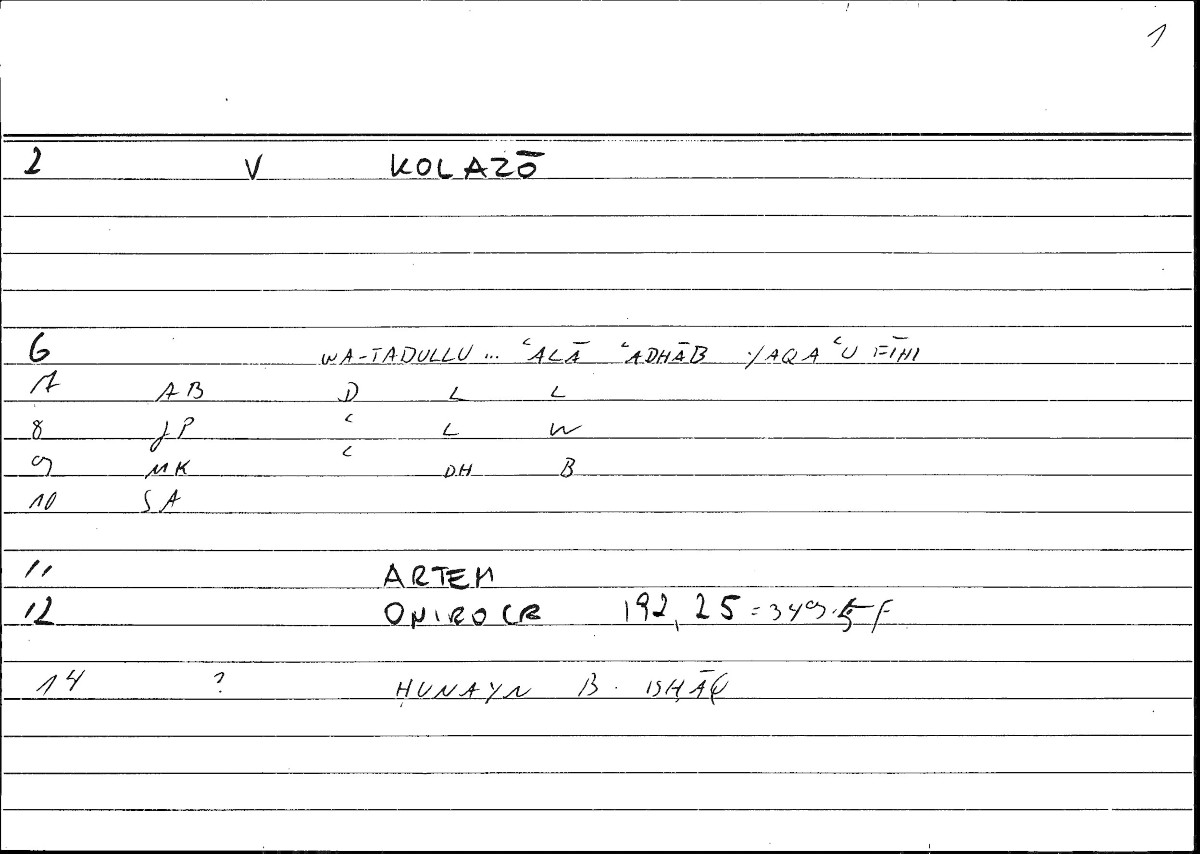 1
2 V KOLAZŌ
6 WA-TADULLU ... ʿALĀ ʿADHĀB YAQAʿU FĪHI
7 AB D L L
8 JP ʿ L W
9 MK ʿ DH B
10 SA
11 ARTEM
12 ONIROCR 192, 25 = 349.
14 ? ḤUNAYN B. ISḤĀQ